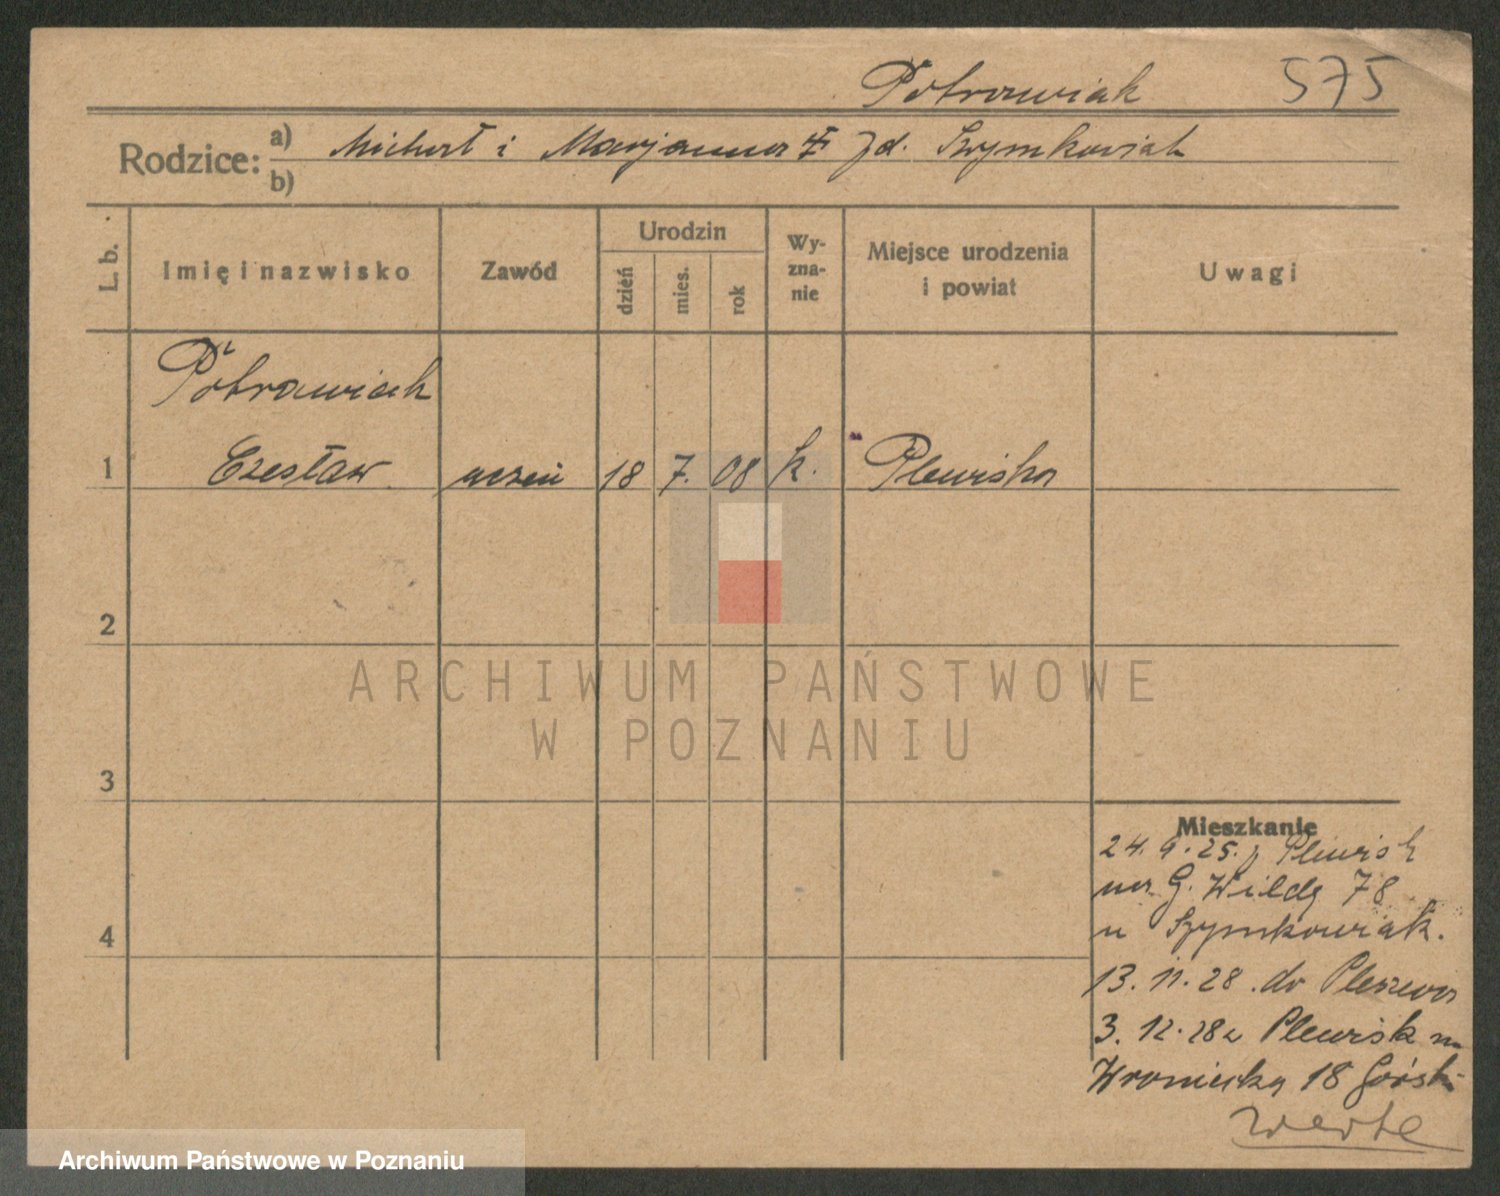 Potrawiak 575
Rodzice: a) Michał i Marjanna Zd. Szymkowiak
b)
L. b. Imię i nazwisko Zawód Urodzin dzień mies. rok Wy-zna-nie Miejsce urodzenia i powiat Uwagi
Potrawiak
1 Czesław uczeń 18 7. 08 k. Plewiska
2
3
4
Mieszkanie
24. 9. 25. z Plewisk
na G. Wildę 78
u Szymkowiak.
13. 11. 28. do Pleszewa
3. 12. 28 z Plewisk na
Wroniecką 18 Górski
verte
ARCHIWUM PAŃSTWOWE
W POZNANIU
Archiwum Państwowe w Poznaniu